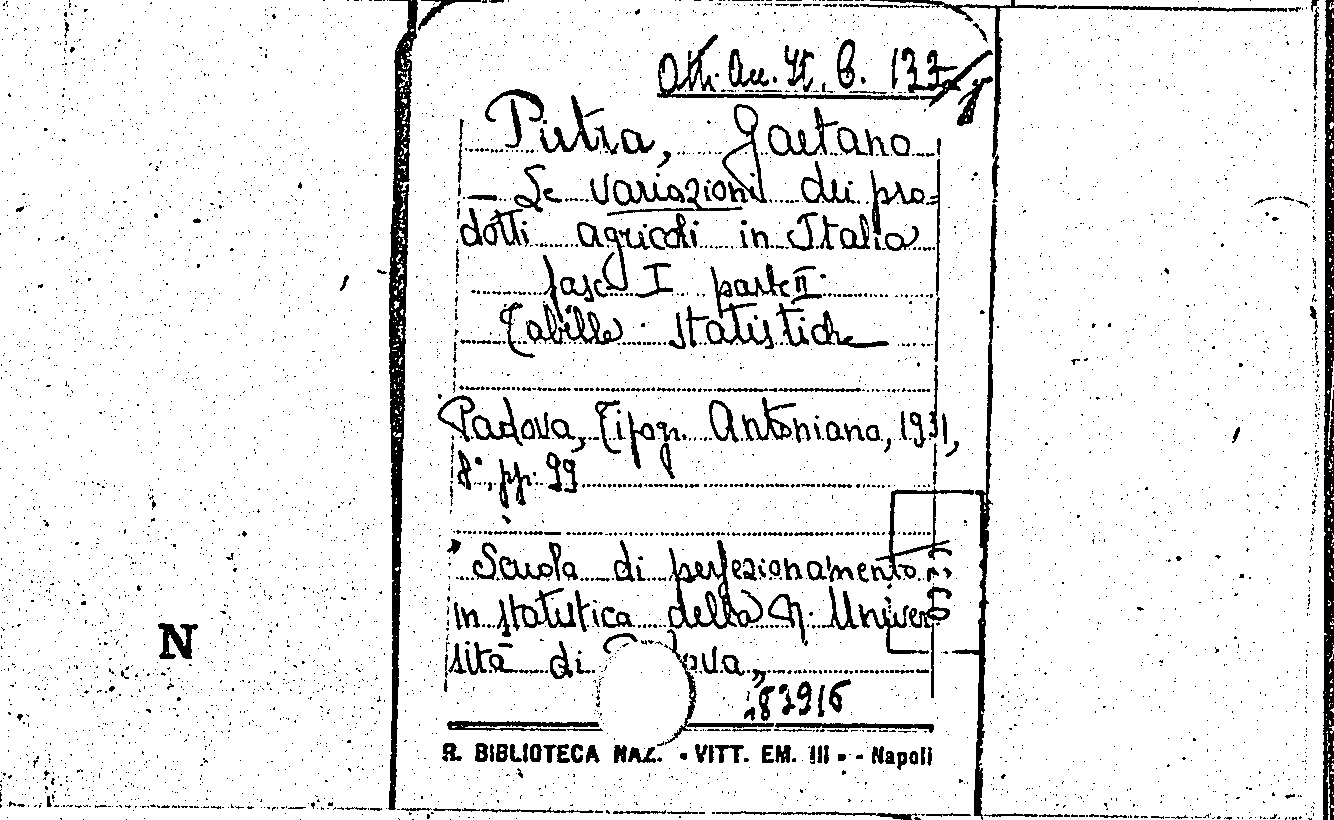 Atti. Acc. St. B. 133
Pietra, Gaetano
— Le variazioni dei pro=
dotti agricoli in Italia
fasc I parte II.
Tabelle statistiche
Padova, Tipogr. Antoniana, 1931,
8°, pp. 99
"Scuola di perfezionamento
in statistica della R. Univer
sità di ova„
183916
N
R. BIBLIOTECA NAZ. - VITT. EM. III - - Napoli